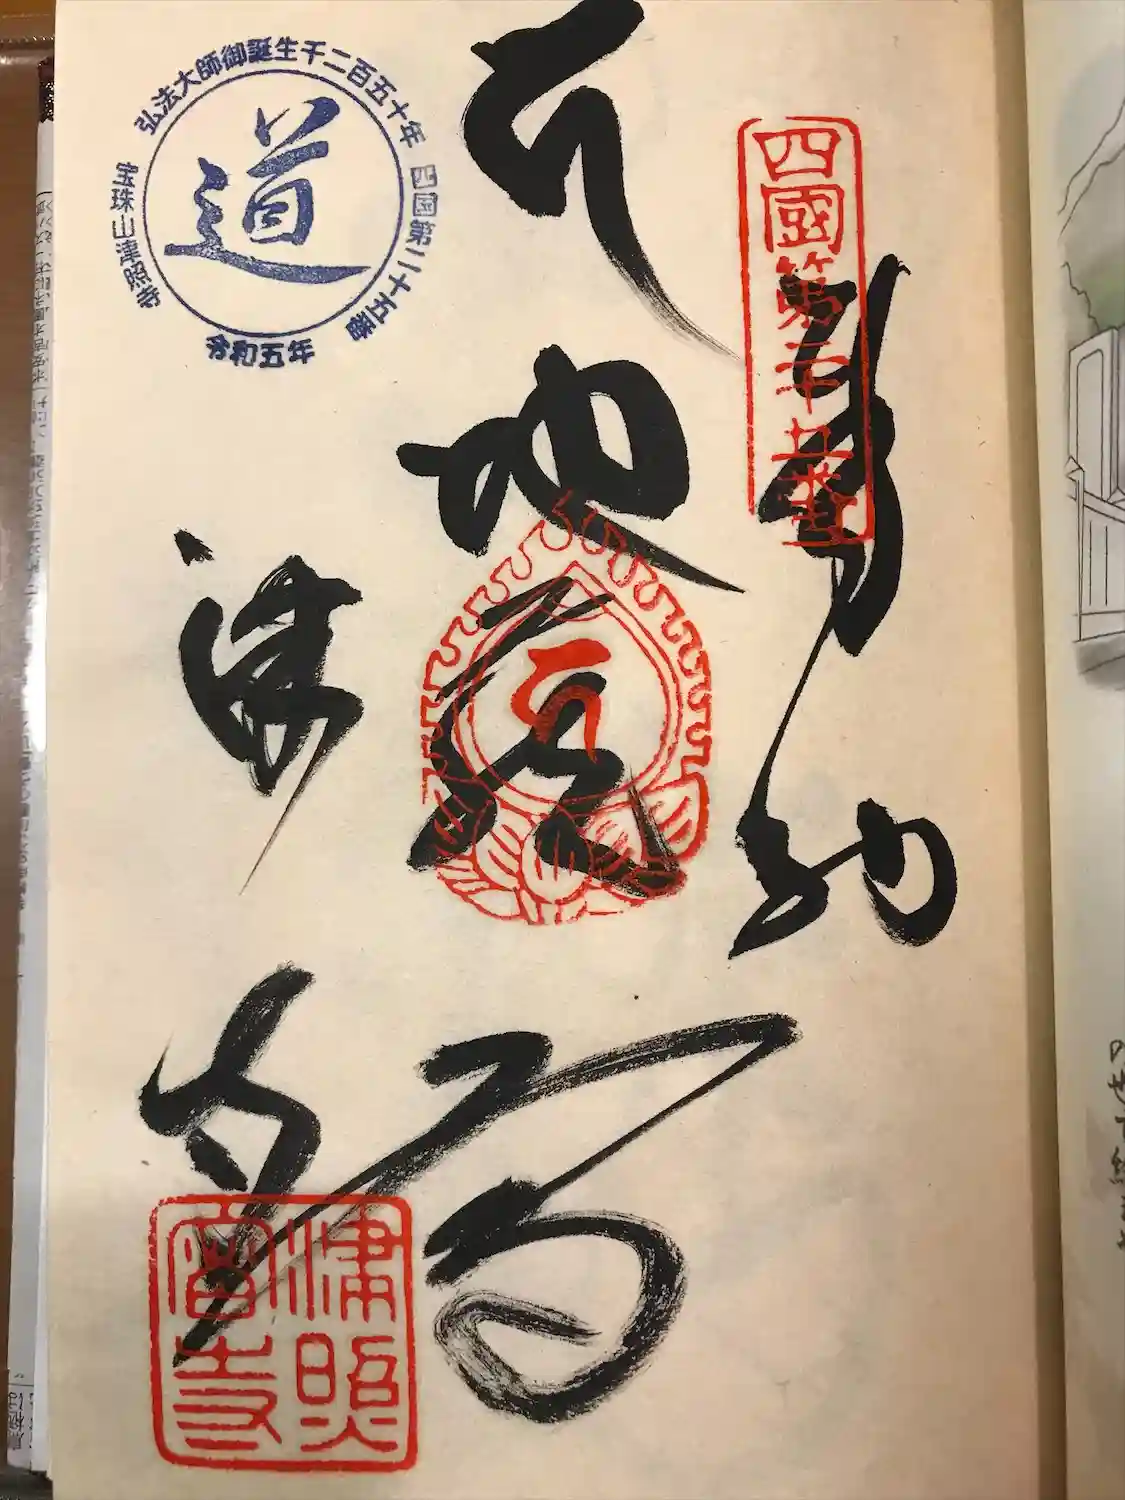 四國第二十五番
奉納
地蔵尊
弘法大師御誕生千二百五十年
四国第二十五番
宝珠山津照寺
令和五年
道
津寺
津照
寺